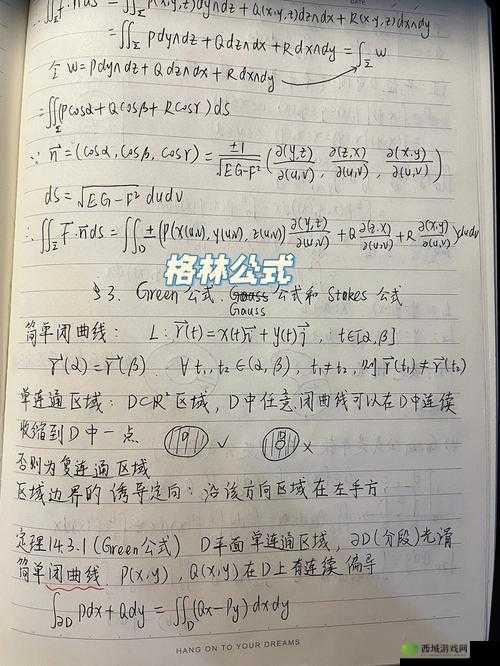 ∬_Σ F·n ds = ∬_Σ P(x,y,z)dy∧dz + Q(x,y,z)dz∧dx + R(x,y,z)dx∧dy
= ∬_Σ Pdy∧dz + Qdz∧dx + Rdx∧dy = ∫_Σ W
令 W = Pdy∧dz + Qdz∧dx + Rdx∧dy
= ∬_Σ (Pcosα + Qcosβ + Rcosγ) ds
∵ n⃗ = (cosα, cosβ, cosγ) = ±1/√(EG-F²) (∂(y,z)/∂(u,v), ∂(z,x)/∂(u,v), ∂(x,y)/∂(u,v))
ds = √(EG-F²) dudv
∴ ∬_Σ F⃗·n⃗ ds = ∬_D ± (P(x(u,v), y(u,v), z(u,v)) ∂(y,z)/∂(u,v) + Q ∂(z,x)/∂(u,v) + R ∂(x,y)/∂(u,v)) dudv
格林公式
§3. Green 公式, Gauss 公式和 Stokes 公式
简单闭曲线: L: r⃗(t) = x(t)i⃗ + y(t)j⃗, t∈[α, β]
r⃗(α) = r⃗(β). ∀ t₁, t₂ ∈ (α, β), t₁≠t₂, 则 r⃗(t₁) ≠ r⃗(t₂)
单连通区域: D⊂R² 区域, D中任意闭曲线可以在D中连续
收缩到D中一点. ✓ ×
否则为复连通区域
区域边界的诱导定向: 沿该方向区域在左手方.
定理14.3.1 (Green公式) D平面单连通区域, ∂D(分段)光滑
简单闭曲线 P(x,y), Q(x,y) 在D上有连续偏导
∫_∂D Pdx + Qdy = ∬_D (Qx - Py) dxdy
HANG ON TO YOUR DREAMS
西域游戏网